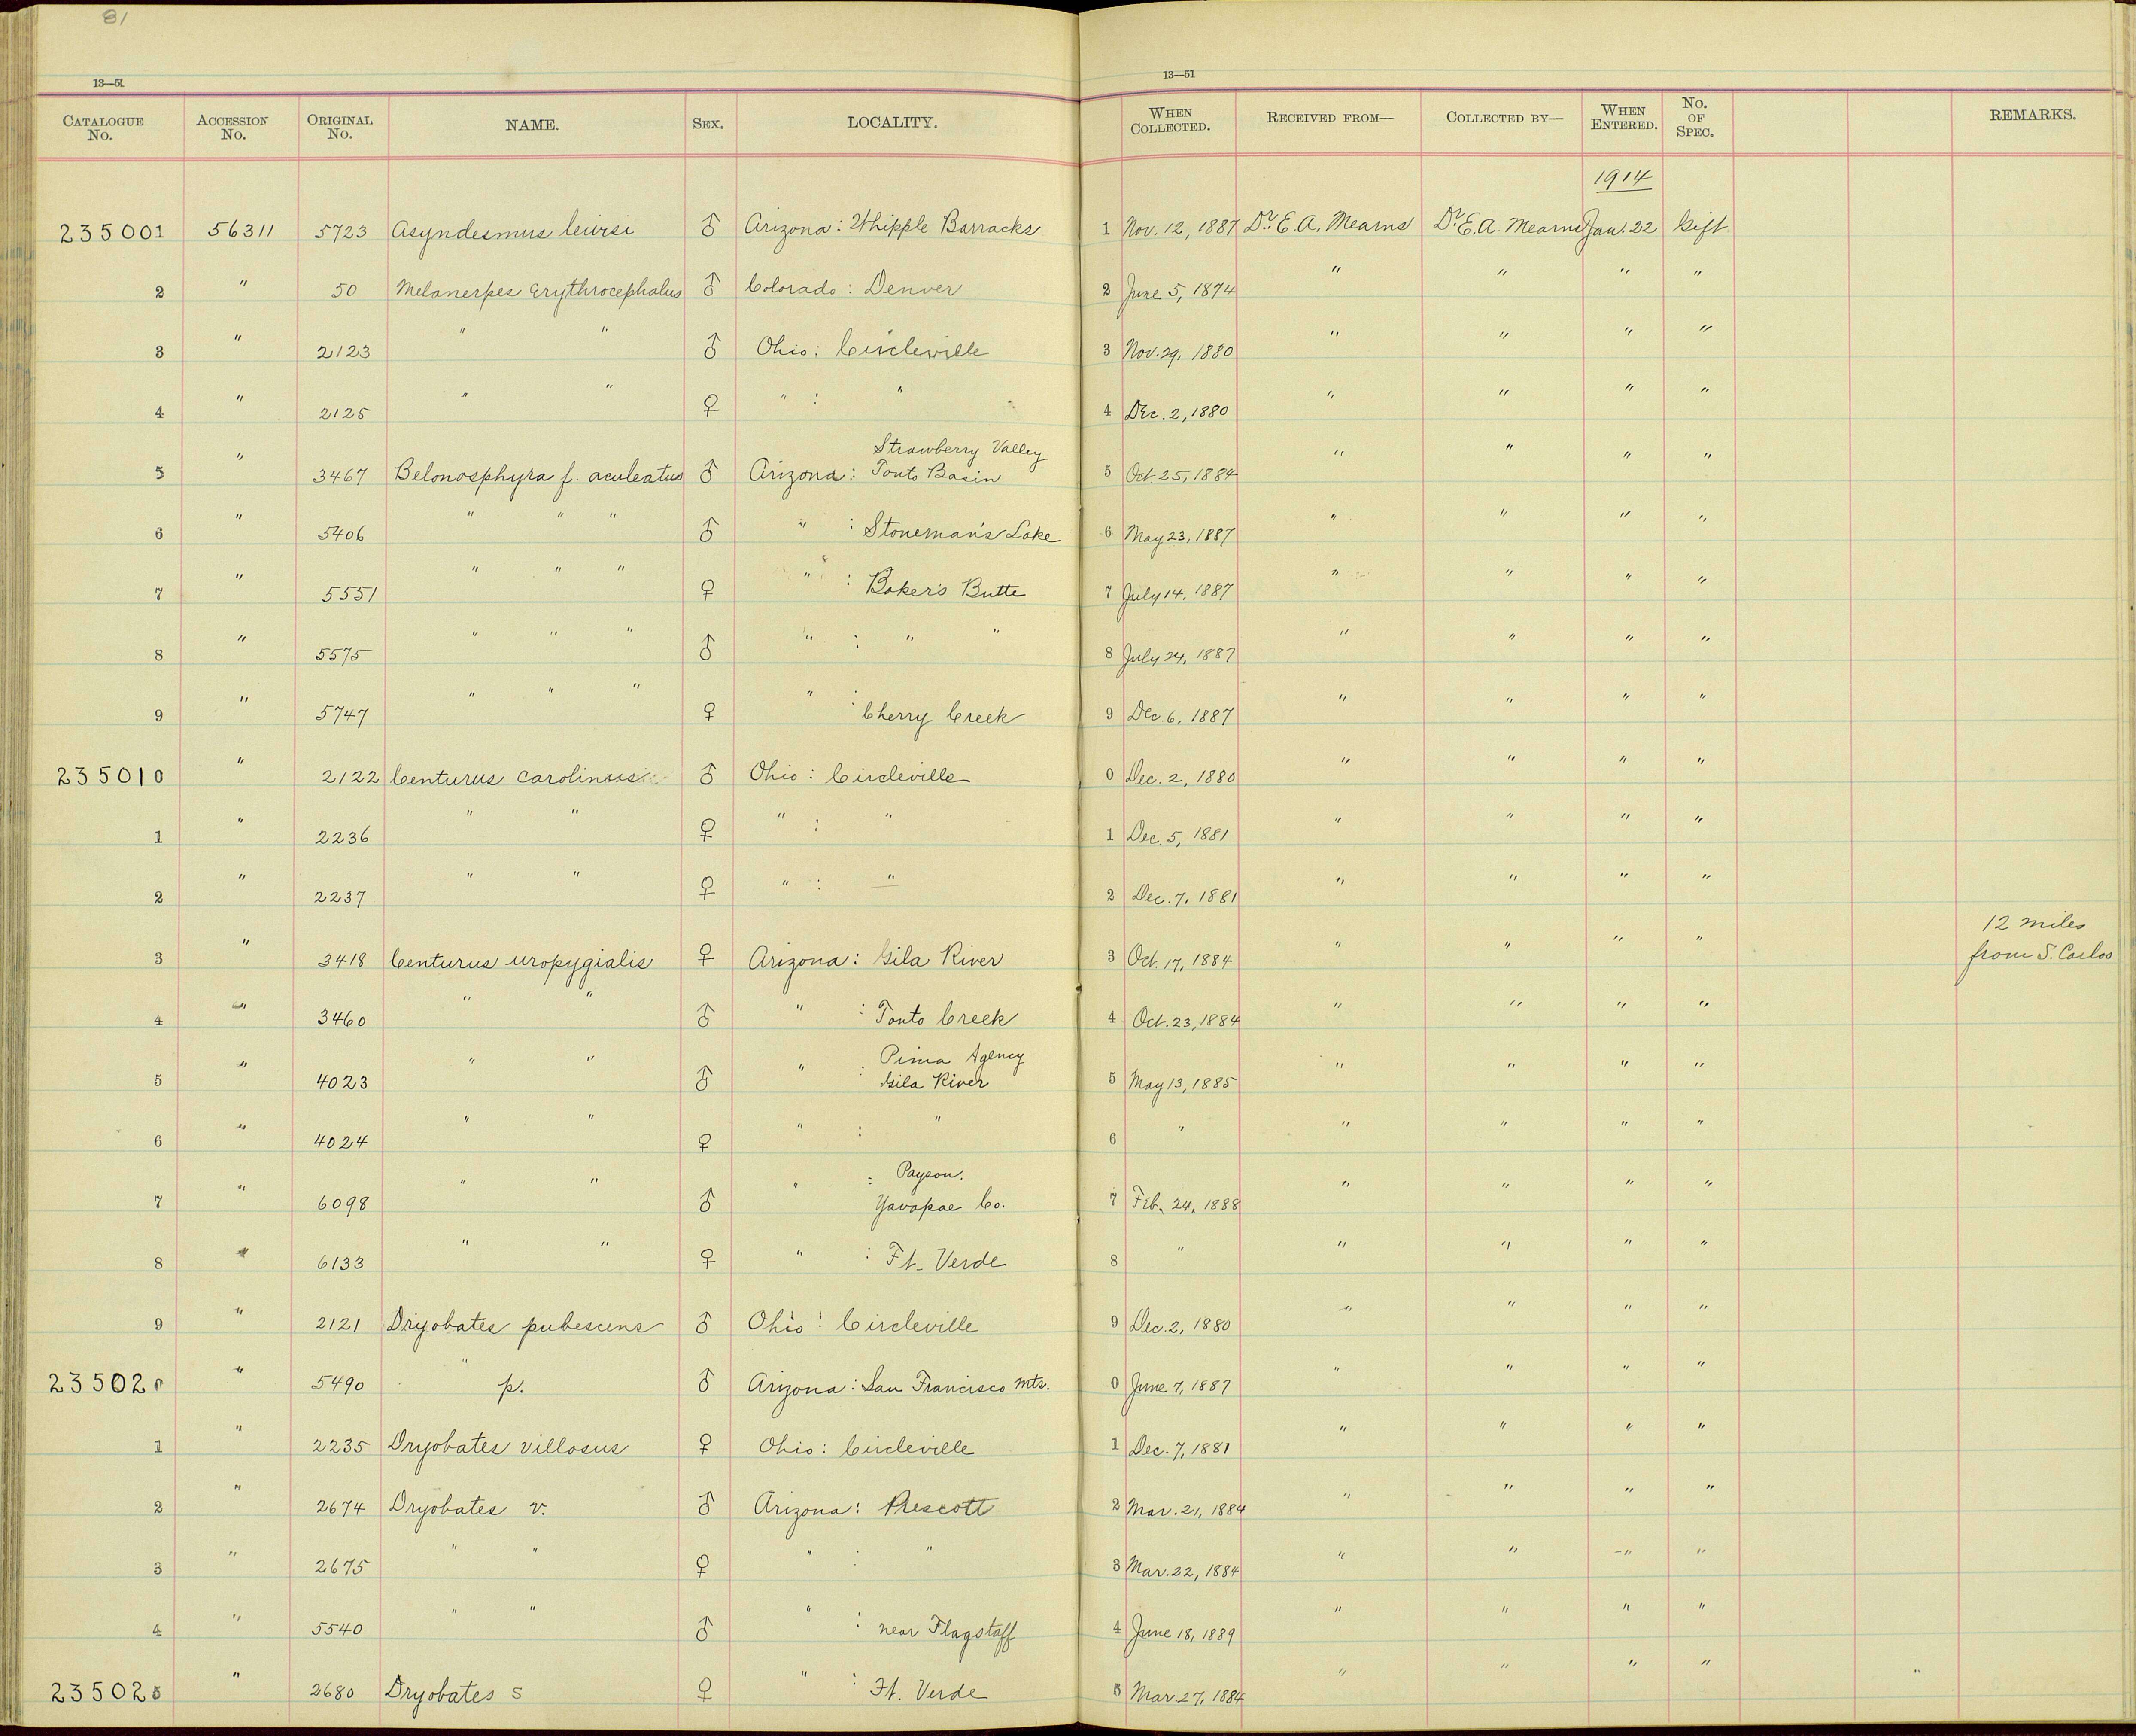 81
13—51
13—51
CATALOGUE No. ACCESSION No. ORIGINAL No. NAME. SEX. LOCALITY. WHEN COLLECTED. RECEIVED FROM— COLLECTED BY— WHEN ENTERED. No. OF SPEC. REMARKS.
1914
235001 56311 5723 Asyndesmus lewisi ♂ Arizona: Whipple Barracks 1 Nov. 12, 1887 Dr. E. A. Mearns Dr. E. A. Mearns Jan. 22 Gift
2 " 50 Melanerpes erythrocephalus ♂ Colorado: Denver 2 June 5, 1874 " " " "
3 " 2123 " " ♂ Ohio: Circleville 3 Nov. 29, 1880 " " " "
4 " 2125 " " ♀ " : " 4 Dec. 2, 1880 " " " "
Strawberry Valley
5 " 3467 Belonosphyra f. aculeatus ♂ Arizona: Tonto Basin 5 Oct. 25, 1884 " " " "
6 " 5406 " " " ♂ " : Stoneman's Lake 6 May 23, 1887 " " " "
7 " 5551 " " " ♀ " : Baker's Butte 7 July 14, 1887 " " " "
8 " 5575 " " " ♂ " : " " 8 July 24, 1887 " " " "
9 " 5747 " " " ♀ " : Cherry Creek 9 Dec. 6, 1887 " " " "
235010 " 2122 Centurus carolinus ♂ Ohio: Circleville 0 Dec. 2, 1880 " " " "
1 " 2236 " " ♀ " : " 1 Dec. 5, 1881 " " " "
2 " 2237 " " ♀ " : " 2 Dec. 7, 1881 " " " "
12 miles
3 " 3418 Centurus uropygialis ♀ Arizona: Gila River 3 Oct. 17, 1884 " " " " from S. Carlos
4 " 3460 " " ♂ " : Tonto Creek 4 Oct. 23, 1884 " " " "
Pima Agency
5 " 4023 " " ♂ " : Gila River 5 May 13, 1885 " " " "
6 " 4024 " " ♀ " : " 6 " " " " "
Payson,
7 " 6098 " " ♂ " : Yavapae Co. 7 Feb. 24, 1888 " " " "
8 " 6133 " " ♀ " : Ft. Verde 8 " " " " "
9 " 2121 Dryobates pubescens ♂ Ohio: Circleville 9 Dec. 2, 1880 " " " "
235020 " 5490 " p. ♂ Arizona: San Francisco Mts. 0 June 7, 1887 " " " "
1 " 2235 Dryobates villosus ♀ Ohio: Circleville 1 Dec. 7, 1881 " " " "
2 " 2674 Dryobates v. ♂ Arizona: Prescott 2 Mar. 21, 1884 " " " "
3 " 2675 " " ♀ " : " 3 Mar. 22, 1884 " " " "
4 " 5540 " " ♂ " : near Flagstaff 4 June 18, 1889 " " " "
235025 " 2680 Dryobates s ♀ " : Ft. Verde 5 Mar. 27, 1884 " " " "